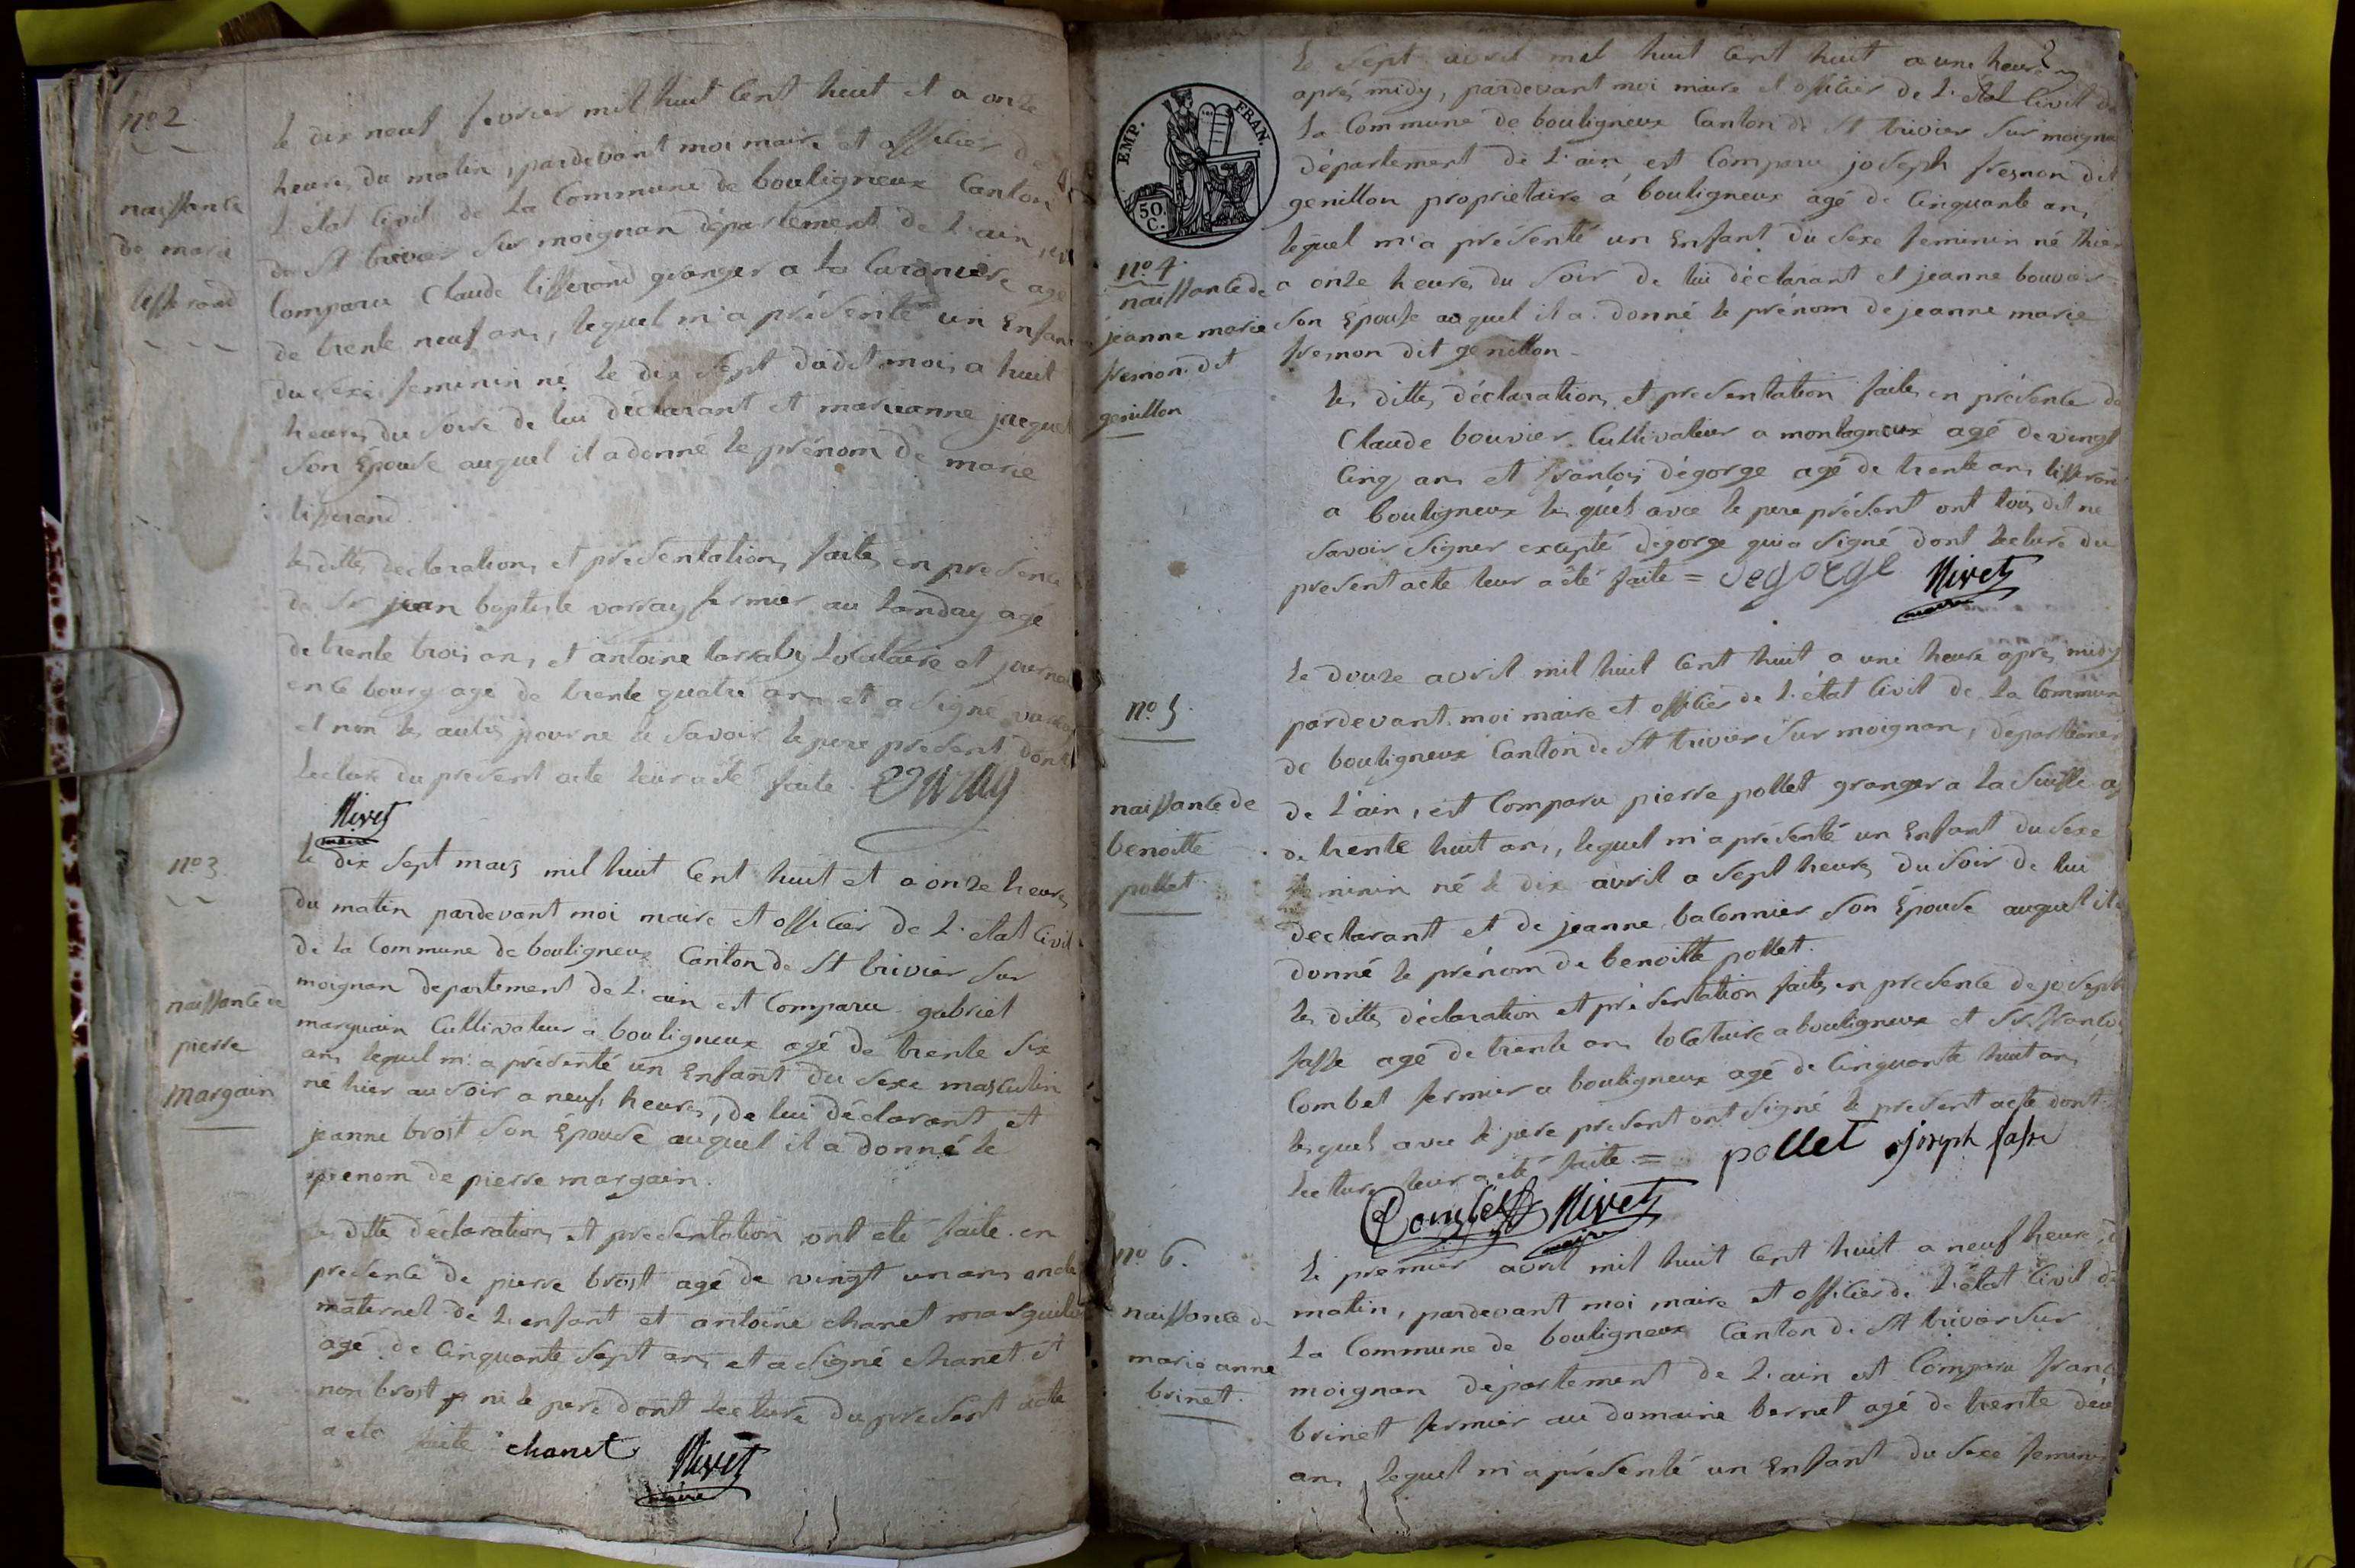 nº 2
naissance
de marie
tisserand
le dix neuf fevrier mil huit cent huit et a onze
heures du matin, pardevant moi maire et officier de
l'état civil de la Commune de bouligneux Canton
de St trivier sur moignan département de l'ain, est
Comparu Claude tisserand granger a la agé
de trente neuf ans, lequel m'a présenté un Enfant
du sexe feminin né le dix sept dudit mois a huit
heures du soire de lui déclarant et marieanne jacquet
son Epouse auquel il a donné le prénom de marie
tisserand.
les dittes declarations et présentation faites en presence
de Sr jean baptiste varray fermier au Tanday agé
de trente trois ans, et antoine locataire et journal
en ce bourg agé de trente quatre ans et a signé varray
et non les autres pour ne le savoir le pere present dont
lecture du présent acte leur a été faite. Varay
Nivet
maire
nº 3
naissance de
pierre
margain
le dix sept mars mil huit Cent huit et a onze heures
du matin pardevant moi maire et officier de l'etat Civil
de la Commune de bouligneux Canton de St trivier sur
moignan departement de l'ain est Comparu gabriel
marguain Cultivateur a bouligneux agé de trente six
ans lequel m'a présenté un Enfant du sexe masculin
né hier au soir a neuf heures, de lui déclarant et
jeanne brost son Epouse auquel il a donné le
prenom de pierre margain.
les ditte déclarations et presentation ont eté faite en
presence de pierre brost agé de vingt un ans oncle
maternel de l'enfant et antoine chanet marguilier
agé de Cinquante sept ans et a signé chanet et
non brost ni le pere dont lecture du present acte
a eté faite chanet Nivet
maire
EMP. FRAN.
50. C.
nº 4.
naissance de
jeanne marie
fresnon dit
genillon
le sept avril mil huit Cent huit a une heure
après midy, pardevant moi maire et officier de l'etat Civil de
la Commune de bouligneux Canton de St trivier sur moignan
département de l'ain, est Comparu joseph fresnon dit
genillon propriétaire a bouligneux agé de Cinquante ans
lequel m'a présenté un Enfant du sexe feminin né hier
a onze heures du soir de lui déclarant et jeanne bouvier
son Epouse auquel il a donné le prénom de jeanne marie
fresnon dit genillon
les dittes déclarations et presentation faites en présence de
Claude bouvier Cultivateur a montagneux agé de vingt
Cinq ans et françois dégorge agé de trente ans tisserand
a bouligneux les quels avec le pere présent ont tous dit ne
savoir signer excepté dégorge qui a signé dont lecture du
present acte leur a été faite = degorge Nivet
maire
nº 5.
naissance de
benoitte
pollet
le douze avril mil huit Cent huit a une heure après midy
pardevant moi maire et officier de l'état Civil de la Commune
de bouligneux Canton de St trivier sur moignan, département
de l'ain, est Comparu pierre pollet granger a la Suisse agé
de trente huit ans, lequel m'a présenté un Enfant du sexe
feminin né le dix avril a sept heures du soir de lui
declarant et de jeanne baconnier son Épouse auquel il a
donné le prénom de benoitte pollet.
les dittes déclaration et présentation faites en presence de joseph
fasse agé de trente ans locataire a bouligneux et Sr françois
Combet fermier a bouligneux agé de Cinquante huit ans
lesquels avec le pere present ont signé le present acte dont
lecture leur a été faite = pollet joseph fasse
Combet Nivet
maire
nº 6.
naissance de
marie anne
brinet.
le premier avril mil huit Cent huit a neuf heures du
matin, pardevant moi maire et officier de l'état Civil de
la Commune de bouligneux Canton de St trivier sur
moignan département de l'ain est Comparu
brinet fermier au domaine bernet agé de trente deux
ans, lequel m'a présenté un Enfant du sexe feminin